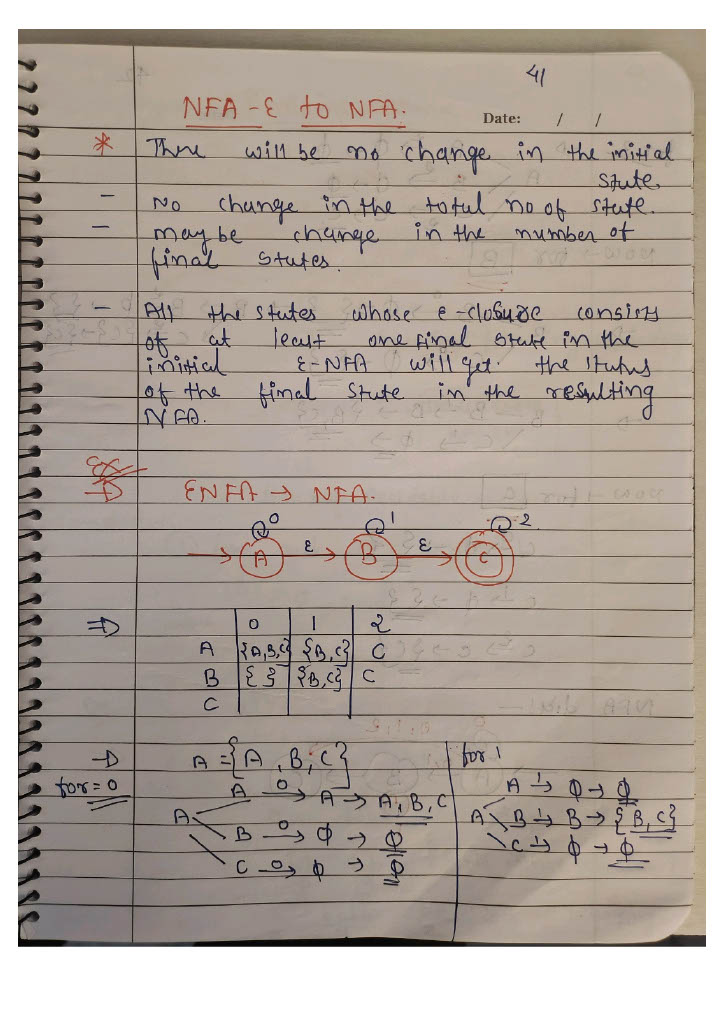 41
NFA-ε to NFA.
Date: / /
* There will be no change in the initial
state.
- No change in the total no of state.
- may be change in the number of
final states.
- All the states whose ε-closure consists
of at least one final state in the
initial ε-NFA will get. the status
of the final state in the resulting
NFA.
ex
→ ENFA → NFA.
0 1 2
→ A ε B ε C
⇒ 0 1 2
A {A,B,C} {B,C} C
B { } {B,C} C
C
→ A = {A, B, C}
for = 0
A 0→ A → A, B, C
A
B 0→ φ → φ
C 0→ φ → φ
for 1
A 1→ φ → φ
A B 1→ B → {B, C}
C 1→ φ → φ